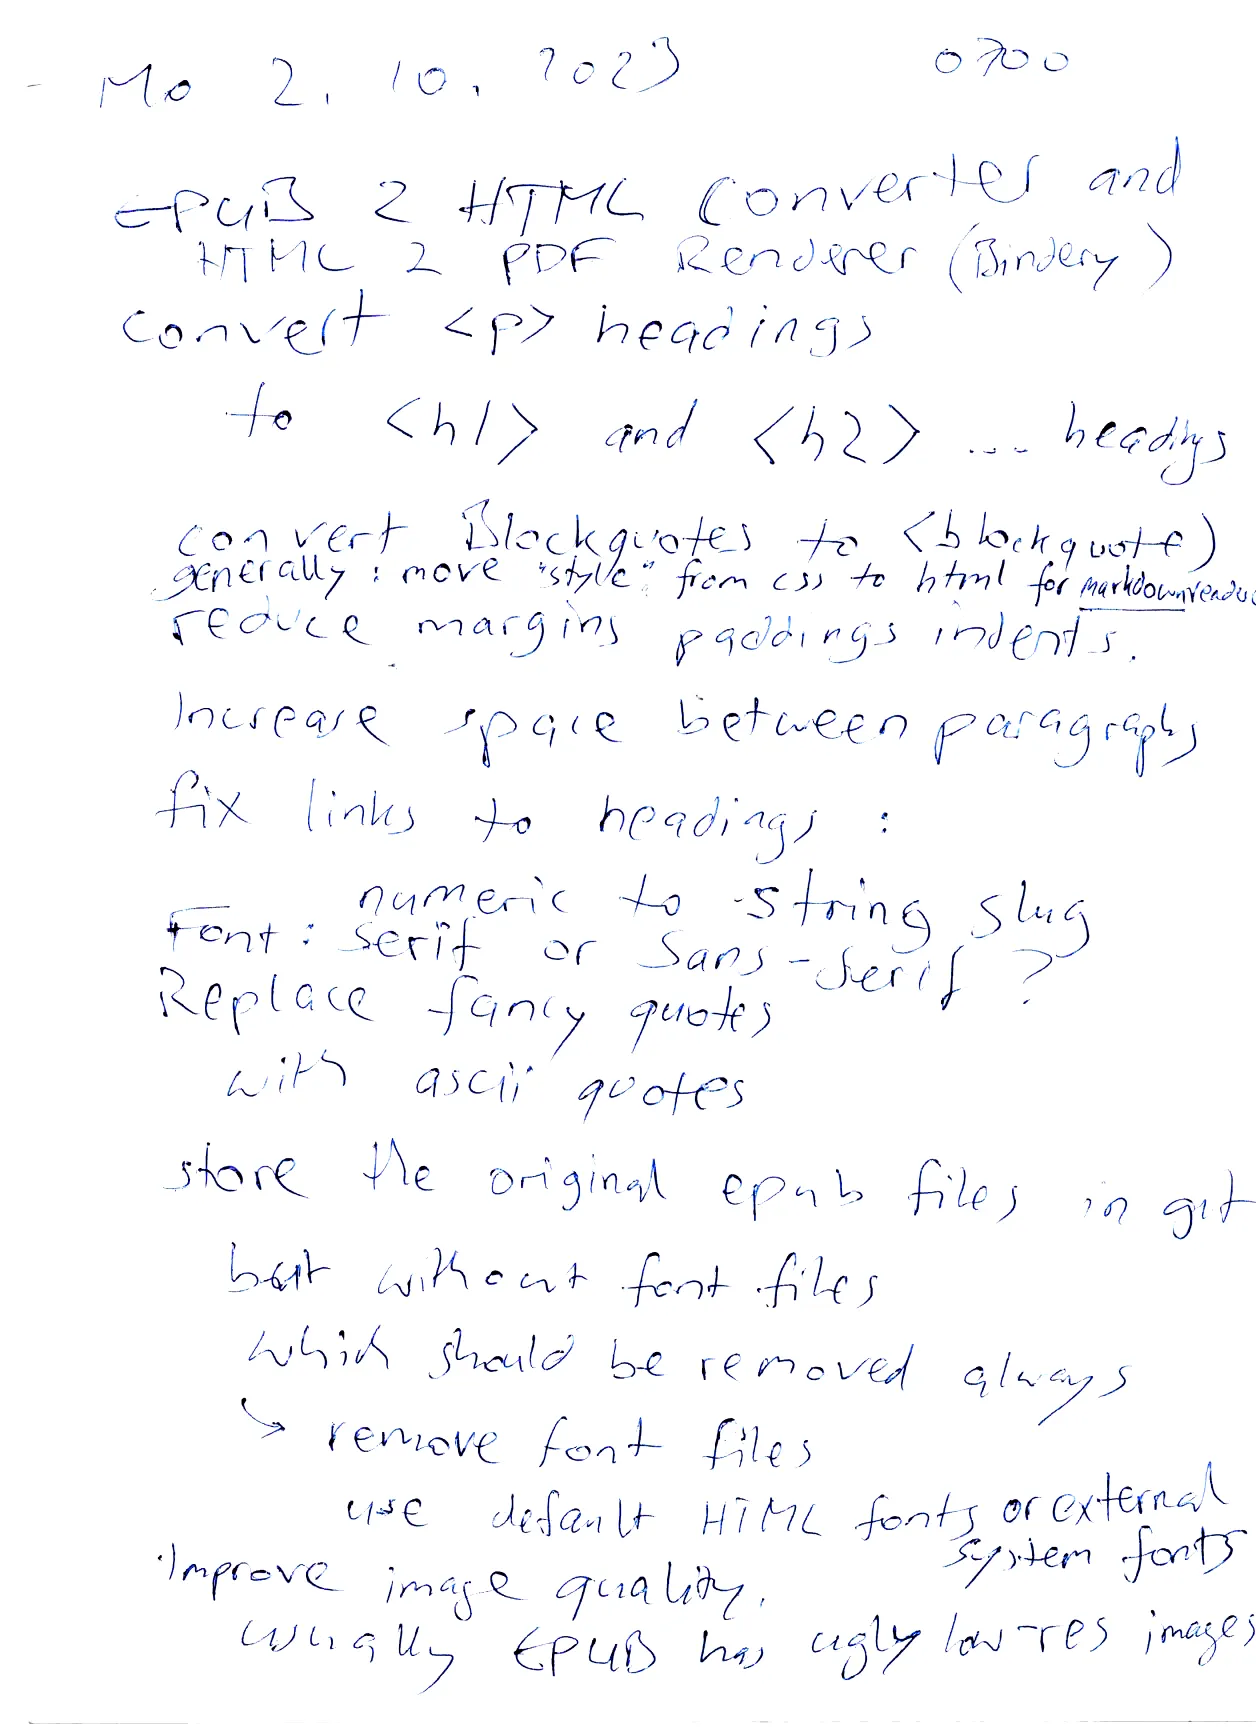 Mo 2. 10. 2023 0700
EPUB 2 HTML Converter and
HTML 2 PDF Renderer (Bindery)
convert <p> headings
to <h1> and <h2> ... headings
convert Blockquotes to <blockquote>
generally: move "style" from css to html for markdownreader
reduce margins paddings indents.
Increase space between paragraphs
fix links to headings:
numeric to string slug
Font: Serif or Sans-Serif?
Replace fancy quotes
with ascii quotes
store the original epub files in git
but without font files
which should be removed always
↳ remove font files
use default HTML fonts or external
system fonts
Improve image quality.
usually EPUB has ugly low-res images